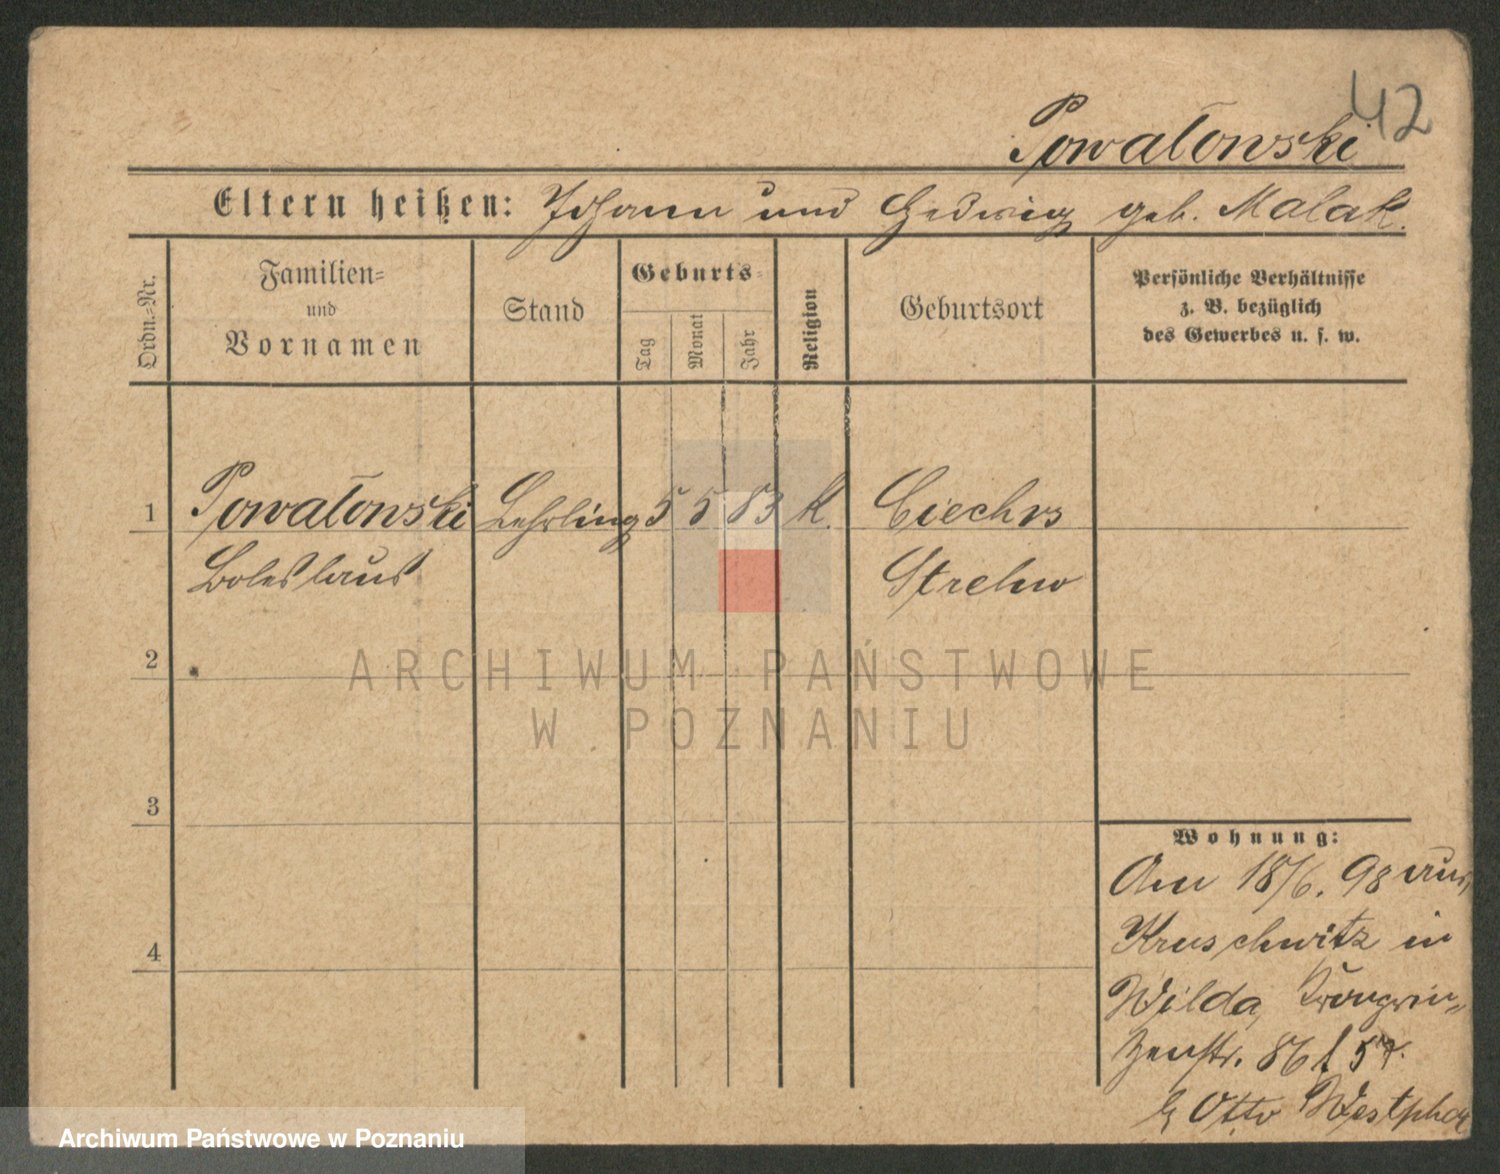 42
Powałowski
Eltern heißen: Johann und Hedwig geb. Malak.
Ordn.=Nr.
Familien=
und
Vornamen
Stand
Geburts=
Tag
Monat
Jahr
Religion
Geburtsort
Persönliche Verhältnisse
z. B. bezüglich
des Gewerbes u. s. w.
1 Powałowski Lehrling 5 5 83 k. Ciechrs
Boleslaus Strelno
2
3
4
Wohnung:
Am 18/6. 98 aus
Kruschwitz in
Wilda, Kronprin=
zenstr. 86
b Otto Westphal
ARCHIWUM PAŃSTWOWE
W POZNANIU
Archiwum Państwowe w Poznaniu